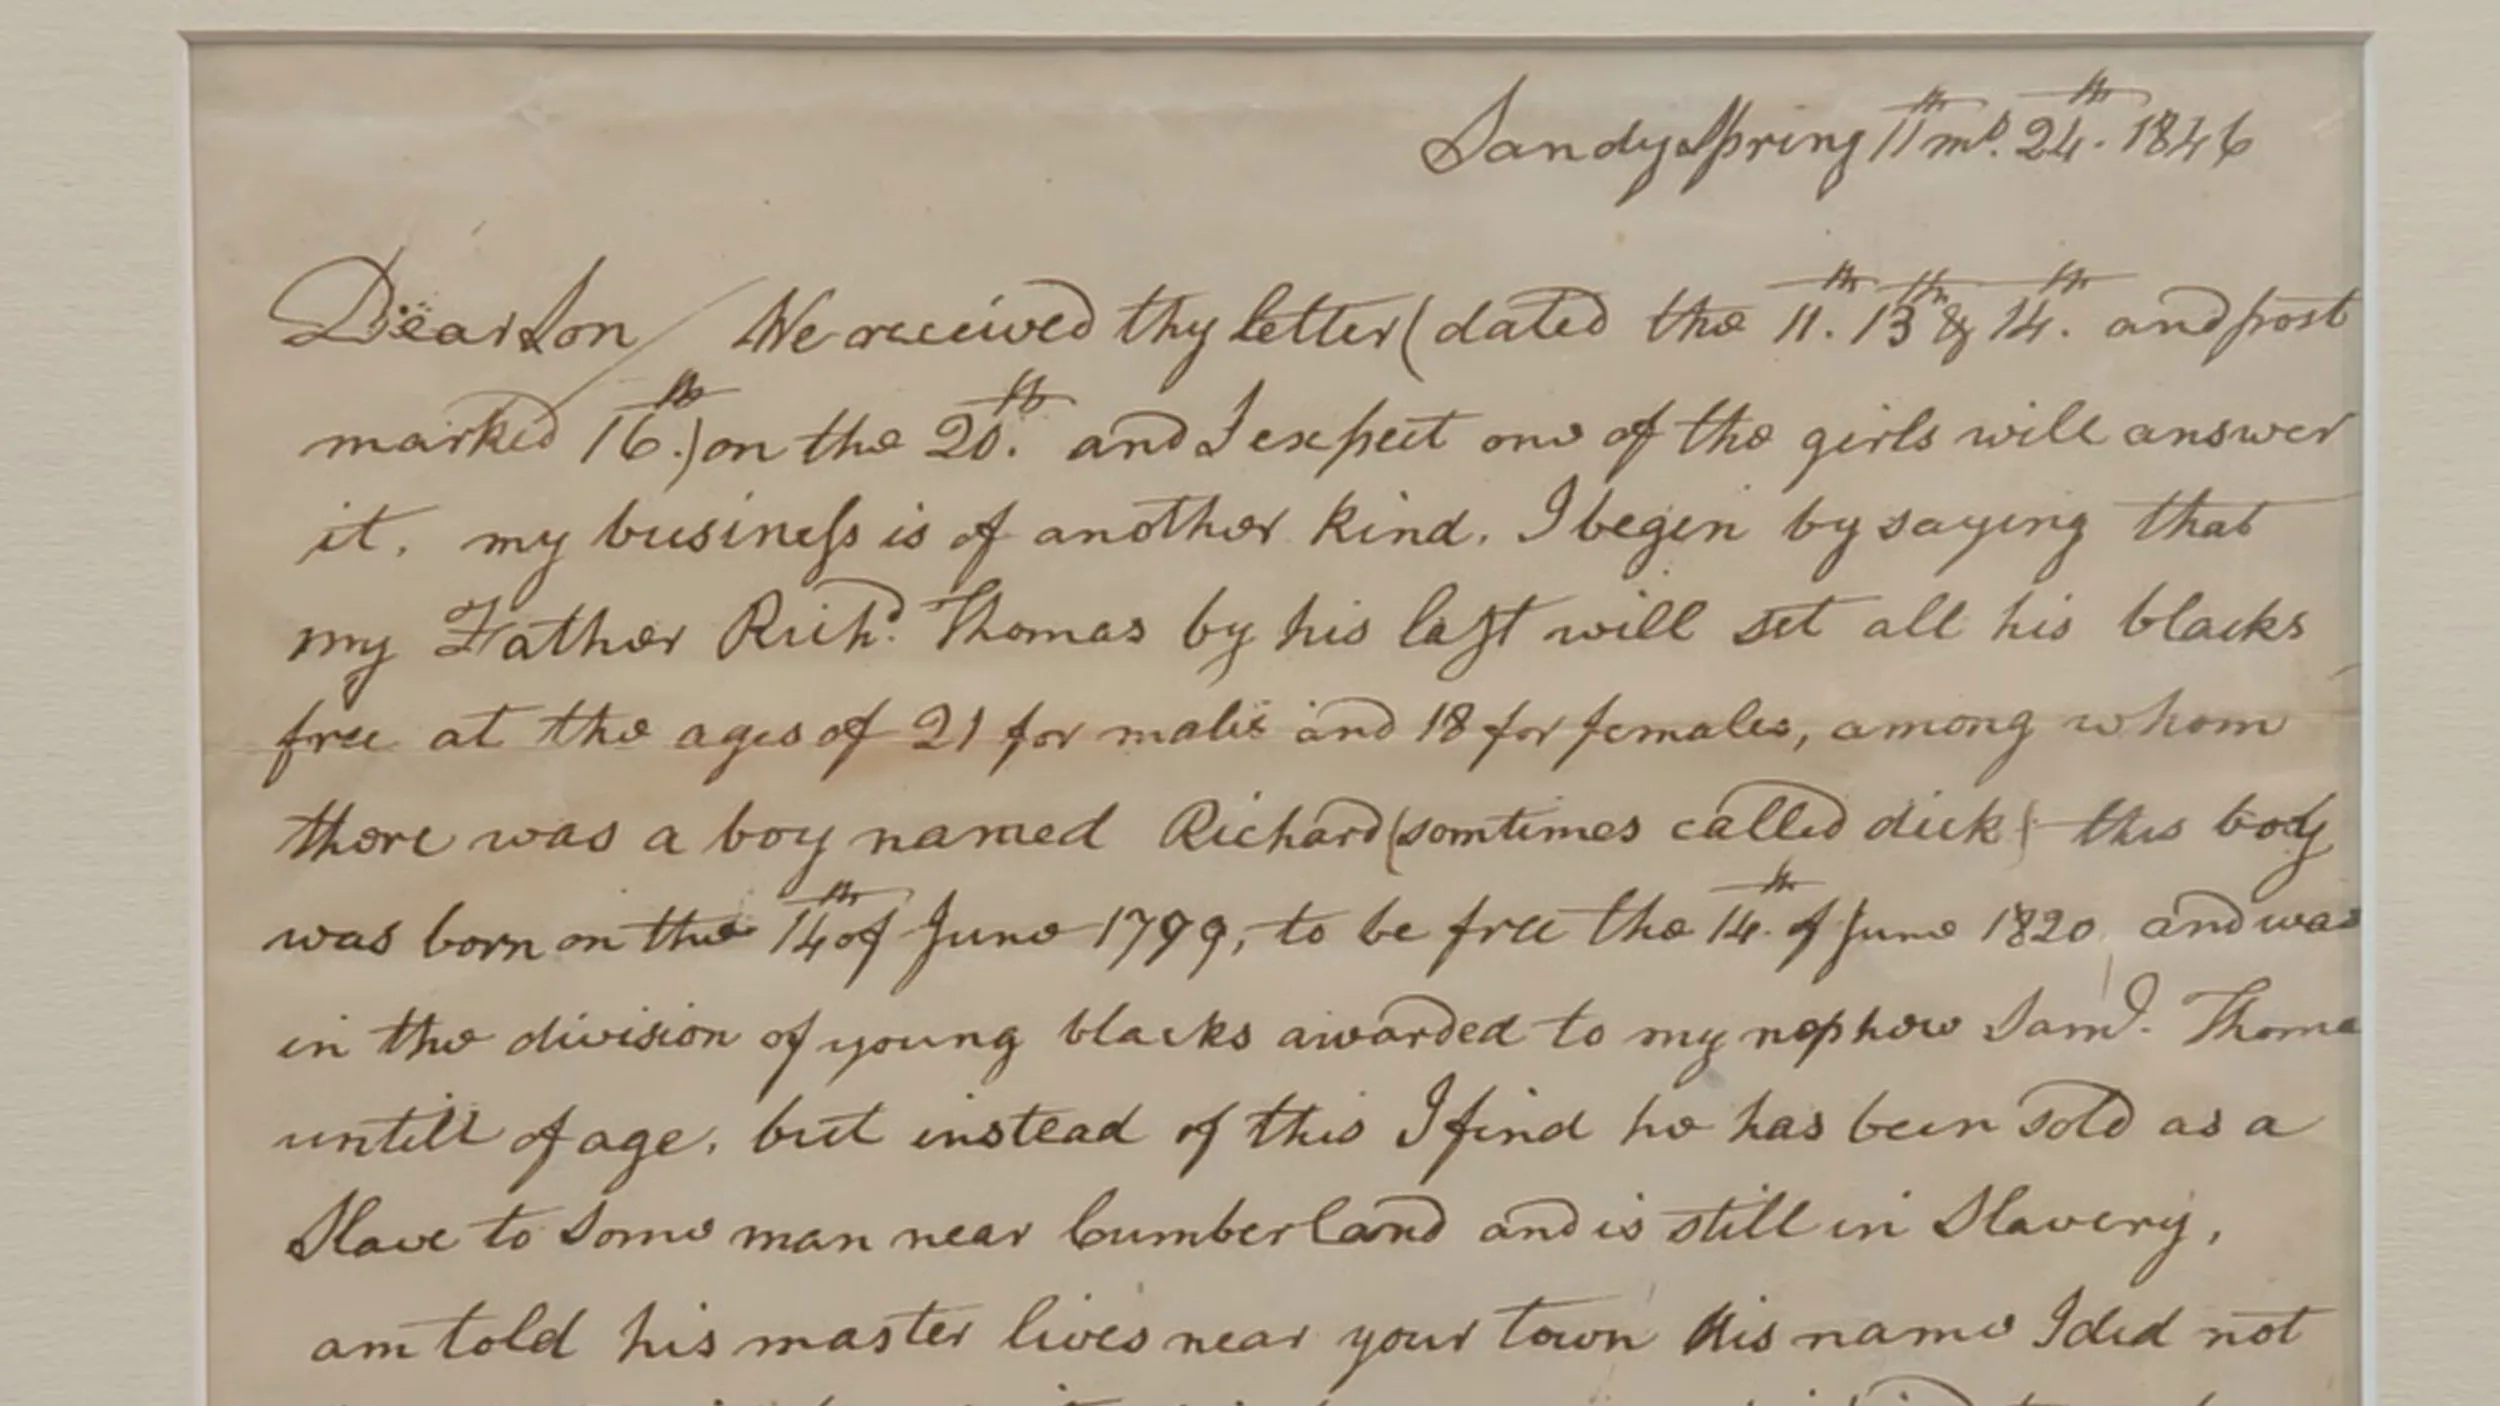 Sandy Spring 11th mo. 24th. 1846
Dear Son / We received thy letter (dated the 11th. 13th & 14th. and post
marked 16th.) on the 20th. and I expect one of the girls will answer
it. my business is of another kind. I begin by saying that
my Father Richd. Thomas by his last will set all his blacks
free at the ages of 21 for males and 18 for females, among whom
there was a boy named Richard (somtimes called dick) this body
was born on the 14th of June 1799, to be free the 14th. of June 1820 and was
in the division of young blacks awarded to my nephew Saml. Thoma
untill of age, but instead of this I find he has been sold as a
Slave to some man near Cumberland and is still in Slavery,
am told his master lives near your town his name I did not